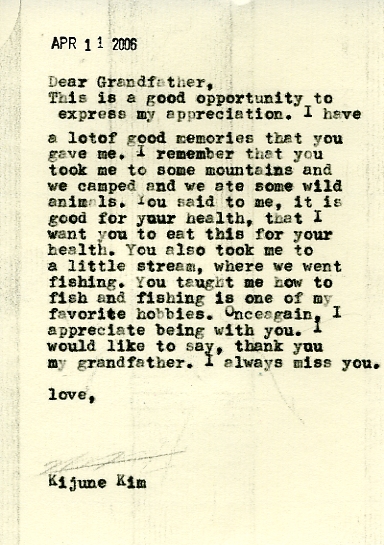 APR 11 2006
Dear Grandfather,
This is a good opportunity to
express my appreciation. I have
a lotof good memories that you
gave me. I remember that you
took me to some mountains and
we camped and we ate some wild
animals. You said to me, it is
good for your health, that I
want you to eat this for your
health. You also took me to
a little stream, where we went
fishing. You taught me how to
fish and fishing is one of my
favorite hobbies. Onceagain, I
appreciate being with you. I
would like to say, thank you
my grandfather. I always miss you.
love,
Kijune Kim